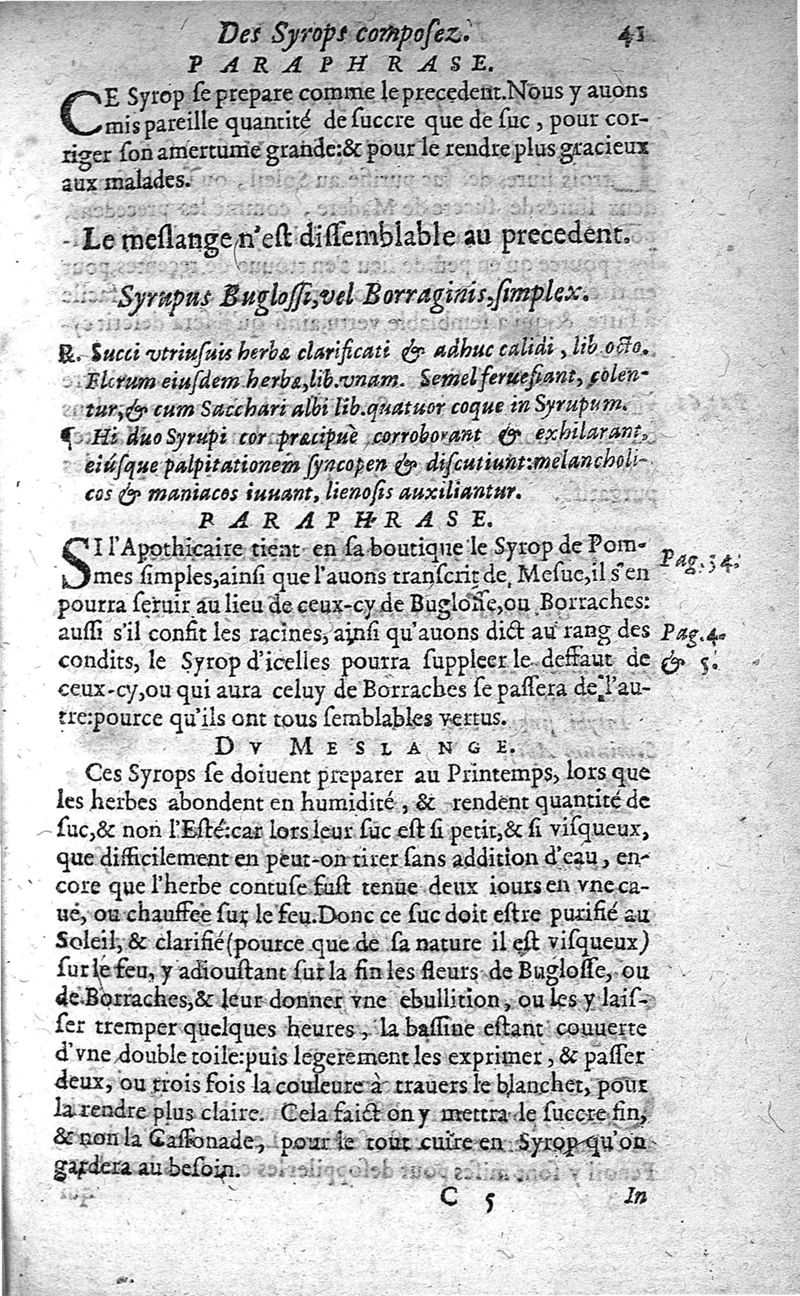 Des Syrops composez. 41
PARAPHRASE.
CE Syrop se prepare comme le precedent.Nous y auons
mis pareille quantité de succre que de suc, pour cor-
riger son amertume grande:& pour le rendre plus gracieux
aux malades.
Le meslange n'est dissemblable au precedent.
Syrupus Buglossi,vel Borraginis,simplex.
℞. Succi vtriusuis herbæ clarificati & adhuc calidi, lib octo.
Florum eiusdem herbæ,lib.vnam. Semel feruefiant, colen-
tur,& cum Sacchari albi lib.quatuor coque in Syrupum.
¶ Hi duo Syrupi cor præcipuè corroborant & exhilarant,
eiúsque palpitationem syncopen & discutiunt:melancholi-
cos & maniacos iuuant, lienosis auxiliantur.
PARAPHRASE.
SI l'Apothicaire tient en sa boutique le Syrop de Pom-
mes simples,ainsi que l'auons transcrit de Mesue,il s'en
Pag.34.
pourra seruir au lieu de ceux-cy de Buglosse,ou Borraches:
aussi s'il confit les racines, ainsi qu'auons dict au rang des
Pag.4.
condits, le Syrop d'icelles pourra suppleer le deffaut de
& 5.
ceux-cy,ou qui aura celuy de Borraches se passera de l'au-
tre:pource qu'ils ont tous semblables vertus.
DV MESLANGE.
Ces Syrops se doiuent preparer au Printemps, lors que
les herbes abondent en humidité, & rendent quantité de
suc,& non l'Esté:car lors leur suc est si petit,& si visqueux,
que difficilement en peut-on tirer sans addition d'eau, en-
core que l'herbe contuse fust tenue deux iours en vne ca-
ue, ou chauffee sur le feu.Donc ce suc doit estre purifié au
Soleil, & clarifié(pource que de sa nature il est visqueux)
sur le feu, y adioustant sur la fin les fleurs de Buglosse, ou
de Borraches,& leur donner vne ebullition, ou les y lais-
ser tremper quelques heures, la bassine estant couuerte
d'vne double toile:puis legerement les exprimer, & passer
deux, ou trois fois la couleure à trauers le blanchet, pour
la rendre plus claire. Cela faict on y mettra le succre fin,
& non la Cassonade, pour le tout cuire en Syrop qu'on
gardera au besoin.
C 5 In